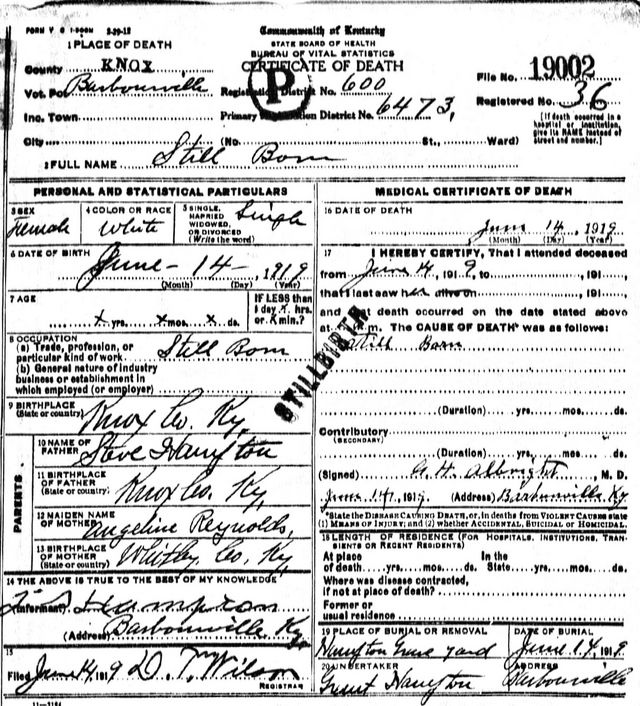 FORM V S 1-500M 3-29-12
Commonwealth of Kentucky
STATE BOARD OF HEALTH
BUREAU OF VITAL STATISTICS
CERTIFICATE OF DEATH
1 PLACE OF DEATH
County KNOX
Vot. Pct Barbourville
Inc. Town
City (No. St., Ward)
Registration District No. 600
Primary Registration District No. 6473,
P
File No. 19002
Registered No. 36
[If death occurred in a
hospital or institution,
give its NAME instead of
street and number.]
2 FULL NAME Still Born
PERSONAL AND STATISTICAL PARTICULARS
3 SEX
Female
4 COLOR OR RACE
White
5 SINGLE,
MARRIED
WIDOWED,
OR DIVORCED
(Write the word)
Single
6 DATE OF BIRTH
June - 14 - , 1919
(Month) (Day) (Year)
7 AGE
x yrs. x mos. x ds.
IF LESS than
1 day x hrs.
or x min.?
8 OCCUPATION
(a) Trade, profession, or
particular kind of work Still Born
(b) General nature of industry
business or establishment in
which employed (or employer)
9 BIRTHPLACE
(State or country) Knox Co. Ky,
PARENTS
10 NAME OF
FATHER Steve Hampton
11 BIRTHPLACE
OF FATHER
(State or country) Knox Co. Ky,
12 MAIDEN NAME
OF MOTHER Angeline Reynolds,
13 BIRTHPLACE
OF MOTHER
(State or country) Whitley Co. Ky,
14 THE ABOVE IS TRUE TO THE BEST OF MY KNOWLEDGE
(Informant) Hampton
(Address) Barbourville Ky.
15
Filed June 14, 1919 D. T. Wilson
REGISTRAR
11-3184
MEDICAL CERTIFICATE OF DEATH
16 DATE OF DEATH
June 14, 1919
(Month) (Day) (Year)
17 I HEREBY CERTIFY, That I attended deceased
from June 14, 1919, to , 191 ,
that I last saw her alive on , 191 ,
and that death occurred on the date stated above
at m. The CAUSE OF DEATH* was as follows:
Still Born
STILLBIRTH
(Duration) yrs. mos. ds.
Contributory
(SECONDARY)
(Duration) yrs. mos. ds.
(Signed) G. H. Albright, M. D.
June 14, 1919. (Address) Barbourville, Ky
*State the DISEASE CAUSING DEATH, or, in deaths from VIOLENT CAUSES state
(1) MEANS OF INJURY; and (2) whether ACCIDENTAL, SUICIDAL or HOMICIDAL.
18 LENGTH OF RESIDENCE (FOR HOSPITALS, INSTITUTIONS, TRANSIENTS
OR RECENT RESIDENTS)
At place In the
of death yrs. mos. ds. State yrs. mos. ds.
Where was disease contracted,
if not at place of death?
Former or
usual residence
19 PLACE OF BURIAL OR REMOVAL
Hampton Grave yard
DATE OF BURIAL
June 14, 1919
20 UNDERTAKER
Grant Hampton
ADDRESS
Barbourville